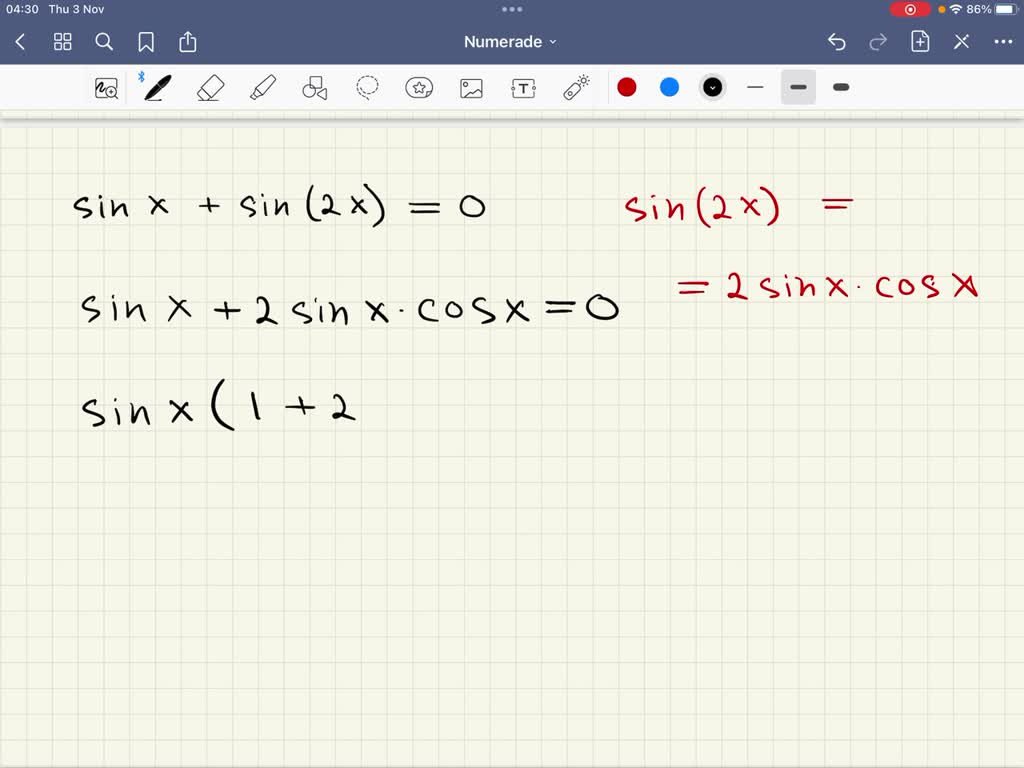 04:30 Thu 3 Nov
86%
Numerade
T
sin x + sin (2x) = 0
sin(2x) =
= 2 sin x · cos x
sin x + 2 sin x · cos x = 0
sin x ( 1 + 2